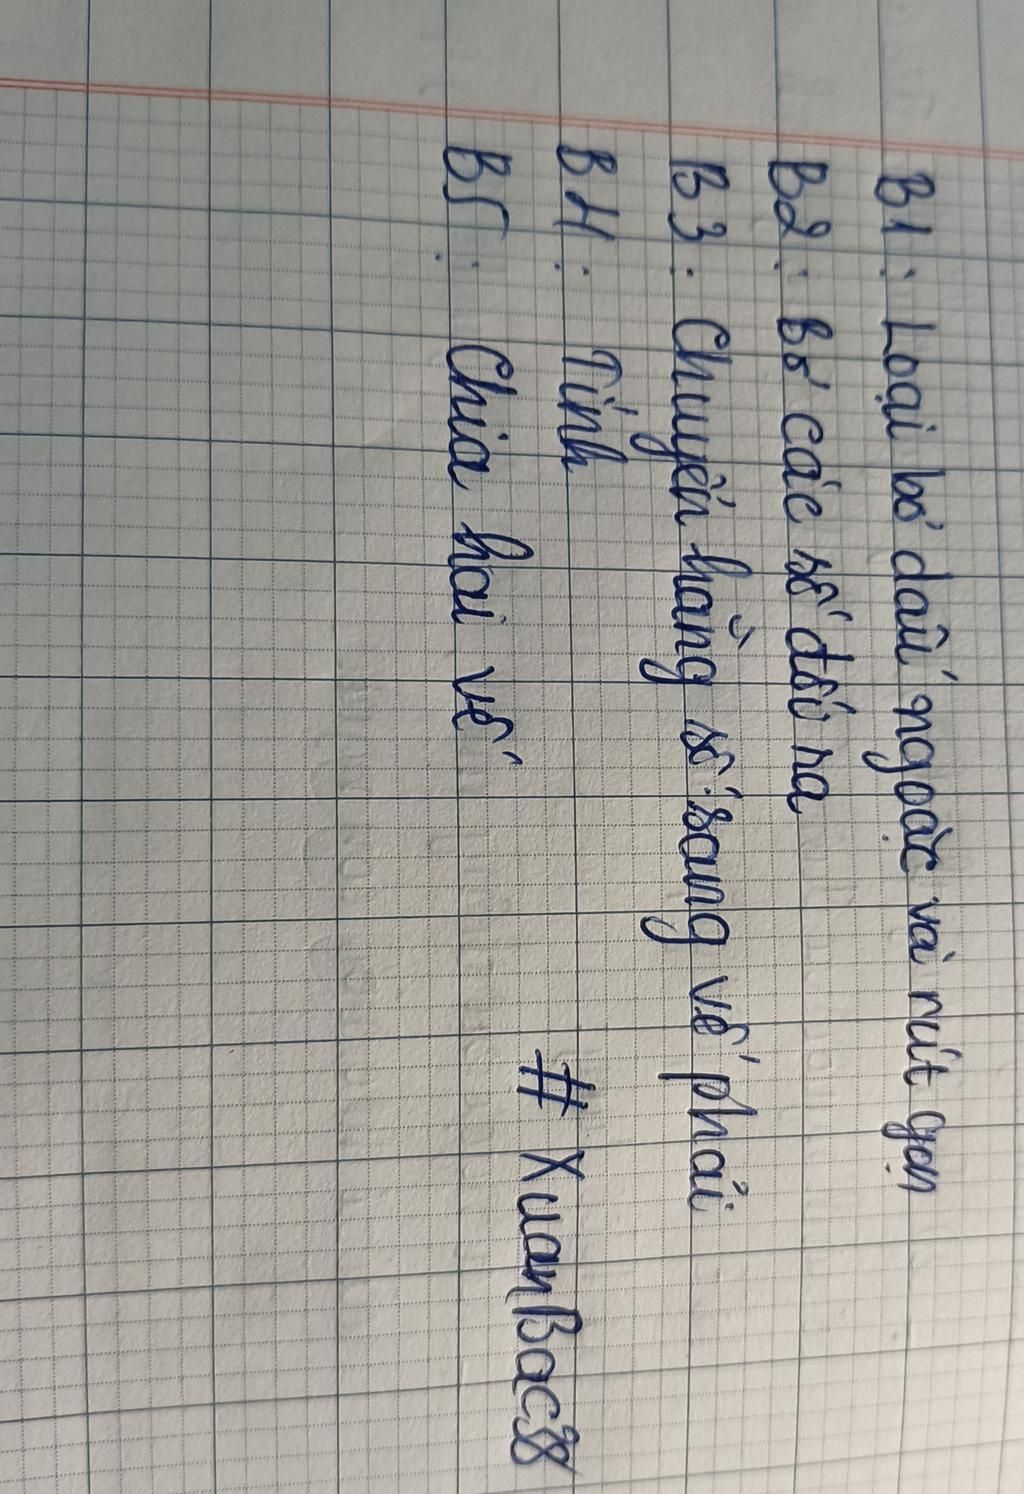 B1: Loại bỏ dấu ngoặc và rút gọn
B2: bỏ các số đối ra
B3: Chuyển hằng số sang vế phải
B4: Tính
B5: Chia hai vế
# XuanBac38